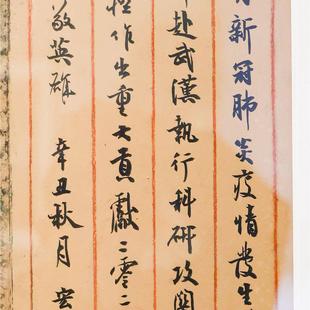 新冠肺炎疫情發生
赴武漢執行科研攻關
作出重大貢獻二零二
英雄 辛丑秋月